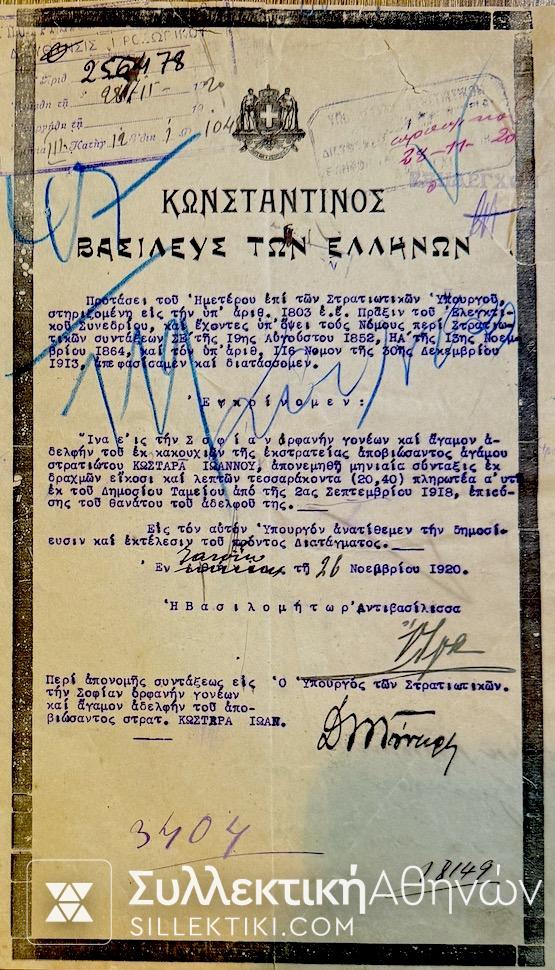 256478
28-11-20
ΚΩΝΣΤΑΝΤΙΝΟΣ
ΒΑΣΙΛΕΥΣ ΤΩΝ ΕΛΛΗΝΩΝ
Προτάσει τοῦ Ἡμετέρου ἐπί τῶν Στρατιωτικῶν Ὑπουργοῦ,
στηριζομένη εἰς τήν ὑπ' ἀριθ. 1803 ἐ.ἔ. Πρᾶξιν τοῦ Ἐλεγκτι-
κοῦ Συνεδρίου, καί ἔχοντες ὑπ'ὄψει τούς Νόμους περί Στρατιω-
τικῶν συντάξεων ΣΗ τῆς 19ης Αὐγούστου 1852, ΗΑ τῆς 13ης Νοεμ-
βρίου 1864, καί τόν ὑπ'ἀριθ, 116 Νομον τῆς 30ης Δεκεμβρίου
1913, ἀπεφασίσαμεν καί διατάσσομεν.
Ἐγκρίνομεν:
Ἵνα εἰς τήν Σοφίαν ὀρφανήν γονέων καί ἄγαμον ἀ-
δελφήν τοῦ ἐκ κακουχιῶν τῆς ἐκστρατείας ἀποβιώσαντος ἀγάμου
στρατιώτου ΚΩΣΤΑΡΑ ΙΩΑΝΝΟΥ, ἀπονεμηθῇ μηνιαία σύνταξις ἐκ
δραχμῶν εἴκοσι καί λεπτῶν τεσσαράκοντα (20,40) πληρωτέα α'υτῇ
ἐκ τοῦ Δημοσίου Ταμείου ἀπό τῆς 2ας Σεπτεμβρίου 1918, ἐπιού-
σης τοῦ θανάτου τοῦ ἀδελφοῦ της.
Εἰς τόν αὐτόν Ὑπουργόν ἀνατίθεμεν τήν δημοσί-
ευσιν καί ἐκτέλεσιν τοῦ παρόντος Διατάγματος.
Ἐν τῇ 26 Νοεμβρίου 1920.
Ἡ Βασιλομήτωρ Ἀντιβασίλισσα
Ὄλγα
Περί ἀπονομῆς συντάξεως εἰς Ὁ Ὑπουργός τῶν Στρατιωτικῶν.
τήν Σοφίαν ὀρφανήν γονέων
καί ἄγαμον ἀδελφήν τοῦ ἀπο-
βιώσαντος στρατ. ΚΩΣΤΕΡΑ ΙΩΑΝ.
3404
18149
ΣυλλεκτικήΑθηνών
SILLEKTIKI.COM